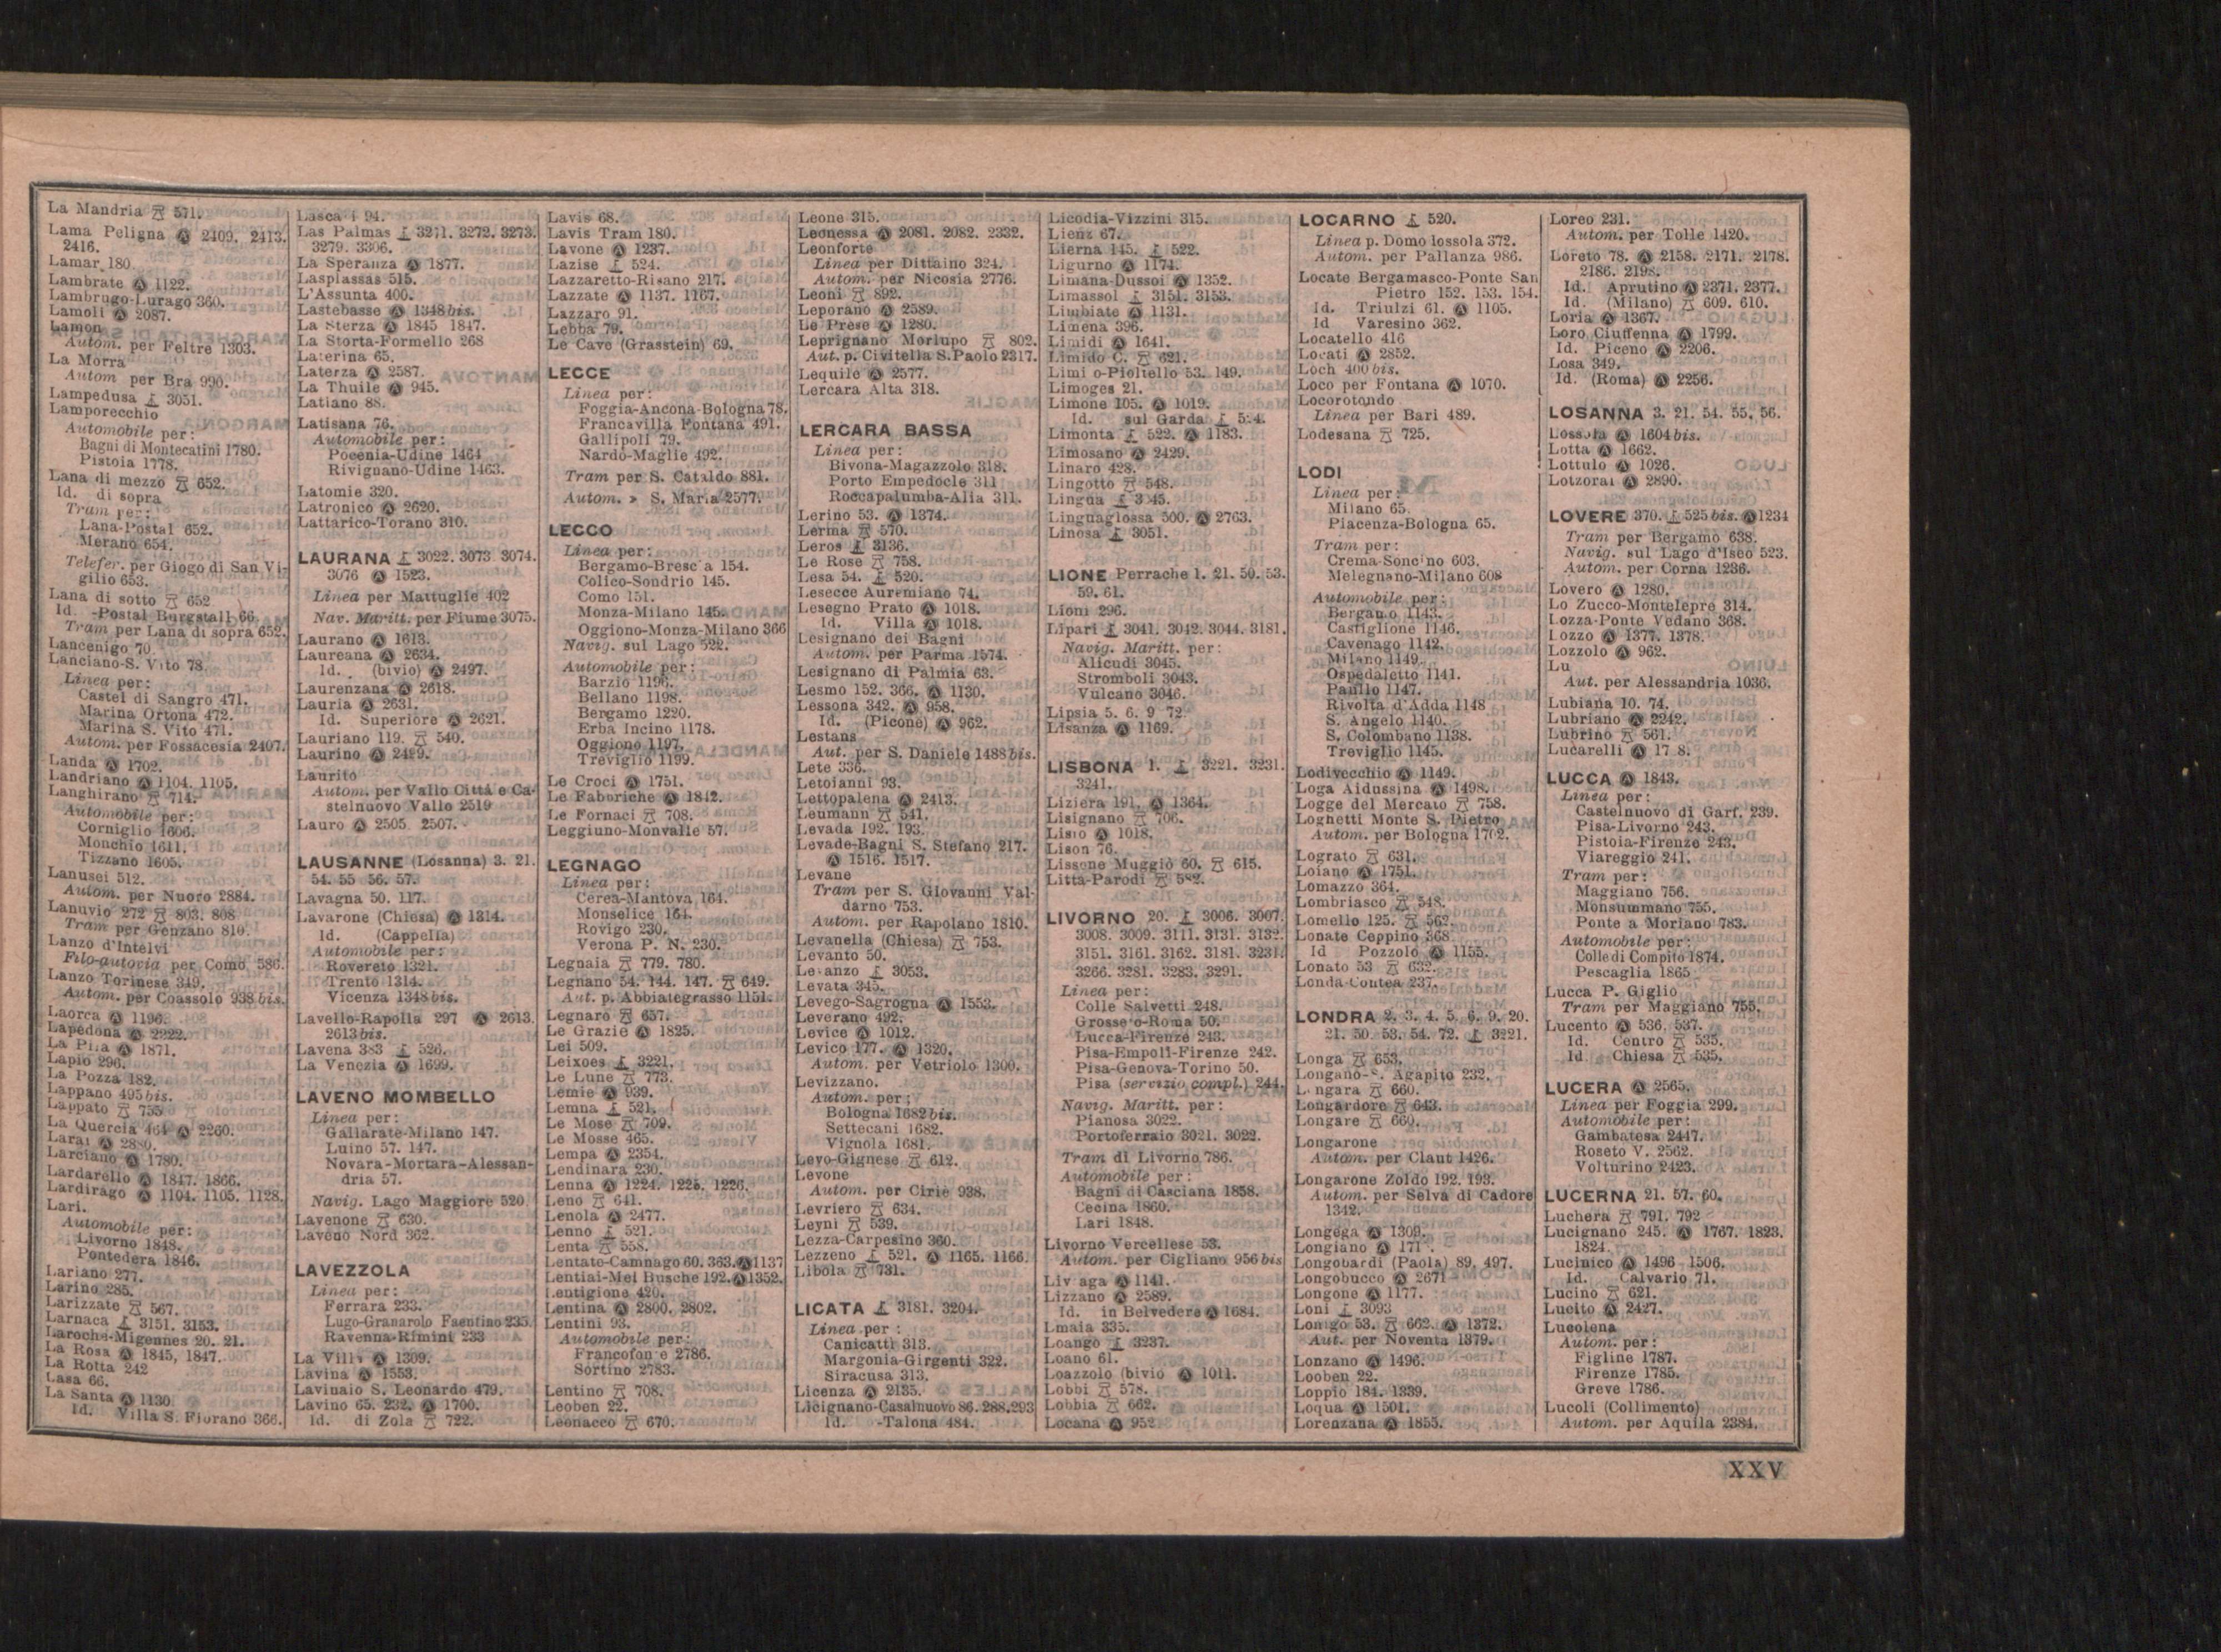 La Mandria 571.
Lama Peligna Ⓐ 2409. 2413.
2416.
Lamar 180.
Lambrate Ⓐ 1122.
Lambrugo-Lurago 360.
Lamoli Ⓐ 2087.
Lamon
Autom. per Feltre 1303.
La Morra
Autom per Bra 990.
Lampedusa 3051.
Lamporecchio
Automobile per:
Bagni di Montecatini 1780.
Pistoia 1778.
Lana di mezzo 652.
Id. di sopra
Tram per:
Lana-Postal 652.
Merano 654.
Telefer. per Giogo di San Vi-
gilio 653.
Lana di sotto 652
Id. -Postal Burgstall 66.
Tram per Lana di sopra 652.
Lancenigo 70.
Lanciano-S. Vito 78.
Linea per:
Castel di Sangro 471.
Marina Ortona 472.
Marina S. Vito 471.
Autom. per Fossacesia 2407.
Landa Ⓐ 1702.
Landriano Ⓐ 1104. 1105.
Langhirano 714.
Automobile per:
Corniglio 1606.
Monchio 1611.
Tizzano 1605.
Lanusei 512.
Autom. per Nuoro 2884.
Lanuvio 272 803. 808
Tram per Genzano 810.
Lanzo d'Intelvi
Filo-autovia per Como 586.
Lanzo Torinese 349.
Autom. per Coassolo 938 bis.
Laorca Ⓐ 1196.
Lapedona Ⓐ 2222.
La Pira Ⓐ 1871.
Lapio 296.
La Pozza 182.
Lappano 495 bis.
Lappato 755
La Quercia 464 Ⓐ 2260.
Larai Ⓐ
Larciano Ⓐ 1780.
Lardarello Ⓐ 1847. 1866.
Lardirago Ⓐ 1104. 1105. 1128.
Lari.
Automobile per:
Livorno 1848.
Pontedera 1846.
Lariano 277.
Larino 285.
Larizzate 567.
Larnaca 3151. 3153.
Laroche-Migennes 20. 21.
La Rosa Ⓐ 1845, 1847.
La Rotta 242
Lasa 66.
La Santa Ⓐ 1130
Id. Villa S. Fiorano 366.
Lasca 94.
Las Palmas 3271. 3272. 3273.
3279. 3306.
La Speranza Ⓐ 1877.
Lasplassas 515.
L'Assunta 400.
Lastebasse Ⓐ 1348 bis.
La Sterza Ⓐ 1845 1847.
La Storta-Formello 268
Laterina 65.
Laterza Ⓐ 2587.
La Thuile Ⓐ 945.
Latiano 88.
Latisana 76.
Automobile per:
Pocenia-Udine 1464
Rivignano-Udine 1463.
Latomie 320.
Latronico Ⓐ 2620.
Lattarico-Torano 310.
LAURANA 3022. 3073 3074.
3076 Ⓐ 1523.
Linea per Mattuglie 402
Nav. Maritt. per Fiume 3075.
Laurano Ⓐ 1613.
Laureana Ⓐ 2634.
Id. (bivio) Ⓐ 2497.
Laurenzana Ⓐ 2618.
Lauria Ⓐ 2631.
Id. Superiore Ⓐ 2621.
Lauriano 119. 540.
Laurino Ⓐ 2429.
Laurito
Autom. per Vallo Città e Ca-
stelnuovo Vallo 2519
Lauro Ⓐ 2505 2507.
LAUSANNE (Losanna) 3. 21.
54. 55 56. 57.
Lavagna 50. 117.
Lavarone (Chiesa) Ⓐ 1314.
Id. (Cappella)
Automobile per:
Rovereto 1321.
Trento 1314.
Vicenza 1348 bis.
Lavello-Rapolla 297 Ⓐ 2613.
2613 bis.
Lavena 383 526.
La Venezia Ⓐ 1699.
LAVENO MOMBELLO
Linea per:
Gallarate-Milano 147.
Luino 57. 147.
Novara-Mortara-Alessan-
dria 57.
Navig. Lago Maggiore 520
Lavenone 630.
Laveno Nord 362.
LAVEZZOLA
Linea per:
Ferrara 233.
Lugo-Granarolo Faentino 235.
Ravenna-Rimini 233
La Villa Ⓐ 1309.
Lavina Ⓐ 1553.
Lavinaio S. Leonardo 479.
Lavino 65. 232. Ⓐ 1700.
Id. di Zola 722.
Lavis 68.
Lavis Tram 180.
Lavone Ⓐ 1237.
Lazise 524.
Lazzaretto-Risano 217.
Lazzate Ⓐ 1137. 1167.
Lazzaro 91.
Lebba 79.
Le Cave (Grasstein) 69.
LECCE
Linea per:
Foggia-Ancona-Bologna 78.
Francavilla Fontana 491.
Gallipoli 79.
Nardò-Maglie 492.
Tram per S. Cataldo 881.
Autom. » S. Maria 2577.
LECCO
Linea per:
Bergamo-Brescia 154.
Colico-Sondrio 145.
Como 151.
Monza-Milano 145.
Oggiono-Monza-Milano 366
Navig. sul Lago 522.
Automobile per:
Barzio 1196.
Bellano 1198.
Bergamo 1220.
Erba Incino 1178.
Oggiono 1197.
Treviglio 1199.
Le Croci Ⓐ 1751.
Le Fabbriche Ⓐ 1842.
Le Fornaci 708.
Leggiuno-Monvalle 57.
LEGNAGO
Linea per:
Cerea-Mantova 164.
Monselice 164.
Rovigo 230.
Verona P. N. 230.
Legnaia 779. 780.
Legnano 54. 144. 147. 649.
Aut. p. Abbiategrasso 1151.
Legnaro 657.
Le Grazie Ⓐ 1825.
Lei 509.
Leixoes 3221.
Le Lune 773.
Lemie Ⓐ 939.
Lemna 521.
Le Mose 709.
Le Mosse 465.
Lempa Ⓐ 2354.
Lendinara 230.
Lenna Ⓐ 1224. 1225. 1226.
Leno 641.
Lenola Ⓐ 2477.
Lenno 521.
Lenta 558.
Lentate-Camnago 60. 363. Ⓐ 1137
Lentiai-Mel Busche 192. Ⓐ 1352.
Lentigione 420.
Lentina Ⓐ 2800. 2802.
Lentini 93.
Automobile per:
Francofonte 2786.
Sortino 2783.
Lentino 708.
Leoben 22.
Leonacco 670.
Leone 315.
Leonessa Ⓐ 2081. 2082. 2332.
Leonforte
Linea per Dittaino 324.
Autom. per Nicosia 2776.
Leoni 892.
Leporano Ⓐ 2589.
Le Prese Ⓐ 1280.
Leprignano Morlupo 802.
Aut. p. Civitella S. Paolo 2317.
Lequile Ⓐ 2577.
Lercara Alta 318.
LERCARA BASSA
Linea per:
Bivona-Magazzolo 318.
Porto Empedocle 311
Roccapalumba-Alia 311.
Lerino 53. Ⓐ 1374.
Lerma 570.
Leros 3136.
Le Rose 758.
Lesa 54. 520.
Lesecce Auremiano 74.
Lesegno Prato Ⓐ 1018.
Id. Villa Ⓐ 1018.
Lesignano dei Bagni
Autom. per Parma 1574.
Lesignano di Palmia 63.
Lesmo 152. 366. Ⓐ 1130.
Lessona 342. Ⓐ 958.
Id. (Picone) Ⓐ 962.
Lestans
Aut. per S. Daniele 1488 bis.
Lete 336.
Letoianni 93.
Lettopalena Ⓐ 2413.
Leumann 541.
Levada 192. 193.
Levade-Bagni S. Stefano 217.
Ⓐ 1516. 1517.
Levane
Tram per S. Giovanni Val-
darno 753.
Autom. per Rapolano 1810.
Levanella (Chiesa) 753.
Levanto 50.
Levanzo 3053.
Levata 345.
Levego-Sagrogna Ⓐ 1553.
Leverano 492.
Levice Ⓐ 1012.
Levico 177. Ⓐ 1320.
Autom. per Vetriolo 1300.
Levizzano.
Autom. per:
Bologna 1682 bis.
Settecani 1682.
Vignola 1681.
Levo-Gignese 612.
Levone
Autom. per Ciriè 938.
Levriero 634.
Leyni 539.
Lezza-Carpesino 360.
Lezzeno 521. Ⓐ 1165. 1166.
Libola 731.
LICATA 3181. 3204.
Linea per:
Canicattì 313.
Margonia-Girgenti 322.
Siracusa 313.
Licenza Ⓐ 2135.
Licignano-Casalnuovo 86. 288. 293
Id. -Talona 484.
Licodia-Vizzini 315.
Lienz 67.
Lierna 145. 522.
Ligurno Ⓐ 1174.
Limana-Dussoi Ⓐ 1352.
Limassol 3151. 3153.
Limbiate Ⓐ 1131.
Limena 396.
Limidi Ⓐ 1641.
Limido C. 621.
Limito-Pioltello 53. 149.
Limoges 21.
Limone 105. Ⓐ 1019.
Id. sul Garda 524.
Limonta 522. Ⓐ 1183.
Limosano Ⓐ 2429.
Linaro 428.
Lingotto 548.
Lingua 3045.
Linguaglossa 500. Ⓐ 2763.
Linosa 3051.
LIONE Perrache 1. 21. 50. 53.
59. 61.
Lioni 296.
Lipari 3041. 3042. 3044. 3181.
Navig. Maritt. per:
Alicudi 3045.
Stromboli 3043.
Vulcano 3046.
Lipsia 5. 6. 9 72
Lisanza Ⓐ 1169.
LISBONA 1. 3221. 3231.
3241.
Liziera 191. Ⓐ 1364.
Lisignano 706.
Lisio Ⓐ 1018.
Lison 76.
Lissone Muggiò 60. 615.
Litta-Parodi 582.
LIVORNO 20. 3006. 3007.
3008. 3009. 3111. 3131. 3132.
3151. 3161. 3162. 3181. 3231.
3266. 3281. 3283. 3291.
Linea per:
Colle Salvetti 248.
Grosseto-Roma 50.
Lucca-Firenze 243.
Pisa-Empoli-Firenze 242.
Pisa-Genova-Torino 50.
Pisa (servizio compl.) 244.
Navig. Maritt. per:
Pianosa 3022.
Portoferraio 3021. 3022.
Tram di Livorno 786.
Automobile per:
Bagni di Casciana 1858.
Cecina 1860.
Lari 1848.
Livorno Vercellese 53.
Autom. per Cigliano 956 bis
Livraga Ⓐ 1141.
Lizzano Ⓐ 2589.
Id. in Belvedere Ⓐ 1684.
Lmaia 335.
Loango 3237.
Loano 61.
Loazzolo (bivio Ⓐ 1011.
Lobbi 578.
Lobbia 662.
Locana Ⓐ 952
LOCARNO 520.
Linea p. Domodossola 372.
Autom. per Pallanza 986.
Locate Bergamasco-Ponte San
Pietro 152. 153. 154.
Id. Triulzi 61. Ⓐ 1105.
Id Varesino 362.
Locatello 416
Locati Ⓐ 2852.
Loch 400 bis.
Loco per Fontana Ⓐ 1070.
Locorotondo
Linea per Bari 489.
Lodesana 725.
LODI
Linea per:
Milano 65.
Piacenza-Bologna 65.
Tram per:
Crema-Soncino 603.
Melegnano-Milano 608
Automobile per:
Bergamo 1143.
Castiglione 1146.
Cavenago 1142.
Milano 1149.
Ospedaletto 1141.
Paullo 1147.
Rivolta d'Adda 1148
S. Angelo 1140.
S. Colombano 1138.
Treviglio 1145.
Lodivecchio Ⓐ 1149.
Loga Aidussina Ⓐ 1498.
Logge del Mercato 758.
Loghetti Monte S. Pietro
Autom. per Bologna 1702.
Lograto 631.
Loiano Ⓐ 1751.
Lomazzo 364.
Lombriasco 548.
Lomello 125. 562.
Lonate Ceppino 368
Id Pozzolo Ⓐ 1155.
Lonato 53 632.
Londa-Contea 237.
LONDRA 2. 3. 4. 5. 6. 9. 20.
21. 50. 53. 54. 72. 3221.
Longa 653.
Longano-S. Agapito 232.
Longara 660.
Longardore 643.
Longare 660.
Longarone
Autom. per Claut 1426.
Longarone Zoldo 192. 193.
Autom. per Selva di Cadore
1342.
Longega Ⓐ 1309.
Longiano Ⓐ
Longobardi (Paola) 89. 497.
Longobucco Ⓐ 2671
Longone Ⓐ 1177.
Loni 3093
Lonigo 53. 662. Ⓐ 1372.
Aut. per Noventa 1379.
Lonzano Ⓐ 1496.
Looben 22.
Loppio 184. 1339.
Loqua Ⓐ 1501.
Lorenzana Ⓐ 1855.
Loreo 231.
Autom. per Tolle 1420.
Loreto 78. Ⓐ 2158. 2171. 2178.
2186. 2198.
Id. Aprutino Ⓐ 2371. 2377.
Id. (Milano) 609. 610.
Loria Ⓐ 1367.
Loro Ciuffenna Ⓐ 1799.
Id. Piceno Ⓐ 2206.
Losa 349.
Id. (Roma) Ⓐ 2256.
LOSANNA 3. 21. 54. 55. 56.
Lossola Ⓐ 1604 bis.
Lotta Ⓐ 1662.
Lottulo Ⓐ 1026.
Lotzorai Ⓐ 2890.
LOVERE 370. 525 bis. Ⓐ 1234
Tram per Bergamo 638.
Navig. sul Lago d'Iseo 523.
Autom. per Corna 1236.
Lovero Ⓐ 1280.
Lo Zucco-Montelepre 314.
Lozza-Ponte Vedano 368.
Lozzo Ⓐ 1377. 1378.
Lozzolo Ⓐ 962.
Lu
Aut. per Alessandria 1036.
Lubiana 10. 74.
Lubriano Ⓐ 2242.
Lubrino 561.
Lucarelli Ⓐ
LUCCA Ⓐ 1843.
Linea per:
Castelnuovo di Garf. 239.
Pisa-Livorno 243.
Pistoia-Firenze 243.
Viareggio 241.
Tram per:
Maggiano 756.
Monsummano 755.
Ponte a Moriano 783.
Automobile per:
Colle di Compito 1874.
Pescaglia 1865
Lucca P. Giglio
Tram per Maggiano 755.
Lucento Ⓐ 536. 537.
Id. Centro 535.
Id. Chiesa 535.
LUCERA Ⓐ 2565.
Linea per Foggia 299.
Automobile per:
Gambatesa 2447.
Roseto V. 2562.
Volturino 2423.
LUCERNA 21. 57. 60.
Luchera 791. 792
Lucignano 245. Ⓐ 1767. 1823.
1824.
Lucinico Ⓐ 1496 1506.
Id. Calvario 71.
Lucino 621.
Lucito Ⓐ 2427.
Lucolena
Autom. per:
Figline 1787.
Firenze 1785.
Greve 1786.
Lucoli (Collimento)
Autom. per Aquila 2384.
XXV